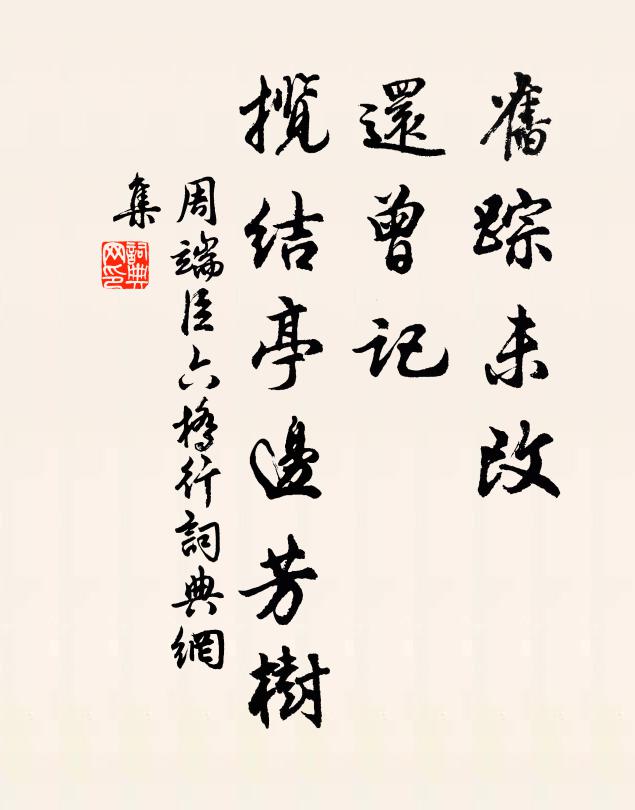 舊踪未改
還曾記
攬結亭邊芳樹
周端臣六橋行詞典網
集
詞典
网印